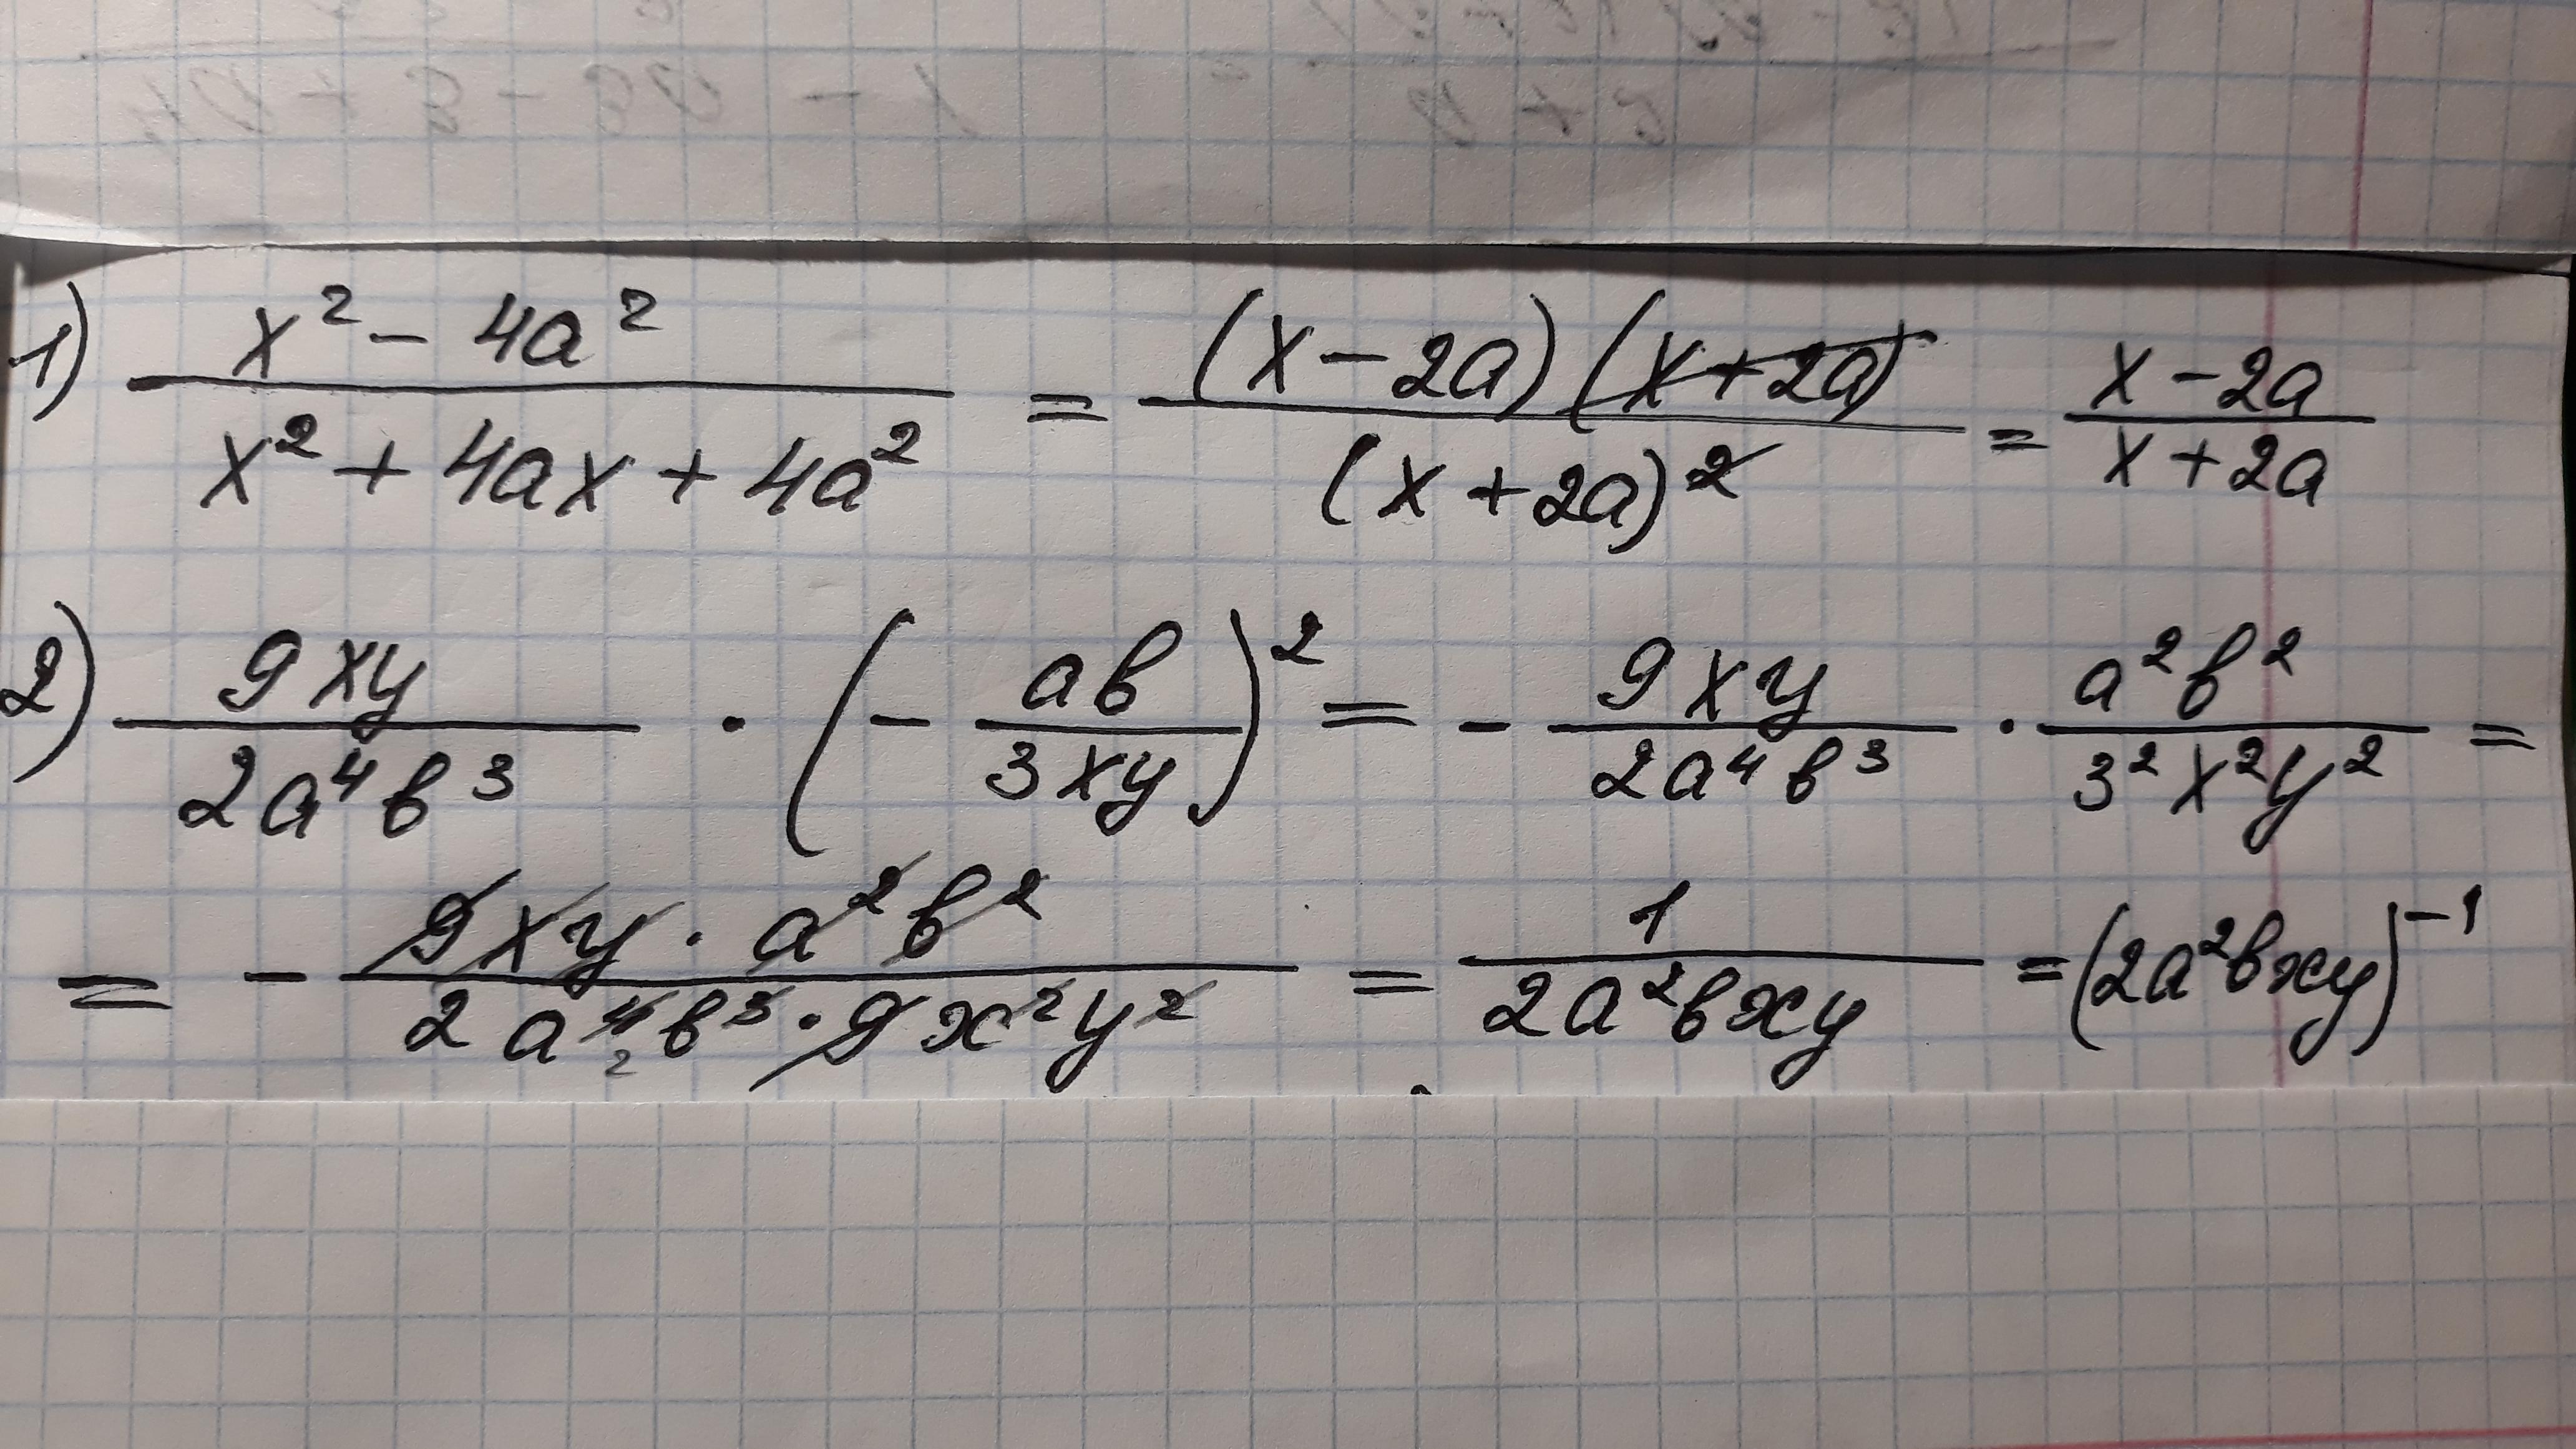 1) \frac{x^2 - 4a^2}{x^2 + 4ax + 4a^2} = \frac{(x - 2a)(x + 2a)}{(x + 2a)^2} = \frac{x - 2a}{x + 2a}
2) \frac{9xy}{2a^4b^3} · (- \frac{ab}{3xy})^2 = - \frac{9xy}{2a^4b^3} · \frac{a^2b^2}{3^2x^2y^2} =
= - \frac{9xy · a^2b^2}{2a^4b^3 · 9x^2y^2} = \frac{1}{2a^2bxy} = (2a^2bxy)^{-1}